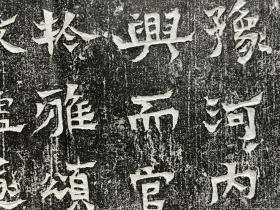 豫河内
興而官
於雅頌